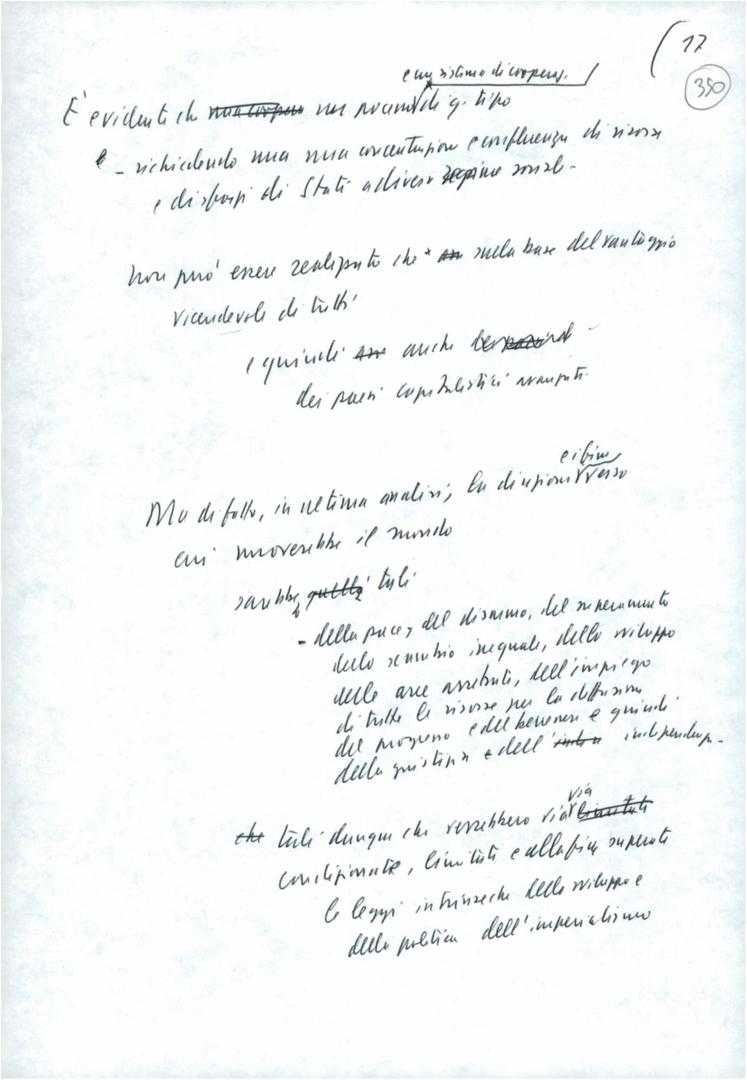 17
350
e un sistema di cooperaz.
È evidente che un processo di q. tipo
- richiedendo una concentrazione e confluenza di risorse
e disforzi di Stati a diverso regime sociale -
non può essere realizzato che sulla base del vantaggio
vicendevole di tutti
e quindi anche
dei paesi capitalistici avanzati.
e i fini
Ma di fatto, in ultima analisi, la direzione verso
cui muoverebbe il mondo
sarebbe quella tali
- della pace, del disarmo, del superamento
dello scambio ineguale, dello sviluppo
delle aree arretrate, dell'impiego
di tutte le risorse per la diffusione
del progresso e del benessere e quindi
della giustizia e dell' indipendenza -
via
che tali dunque che verrebbero via limitate
condizionate, limitate e alla fine superate
le leggi intrinseche dello sviluppo e
della politica dell'imperialismo